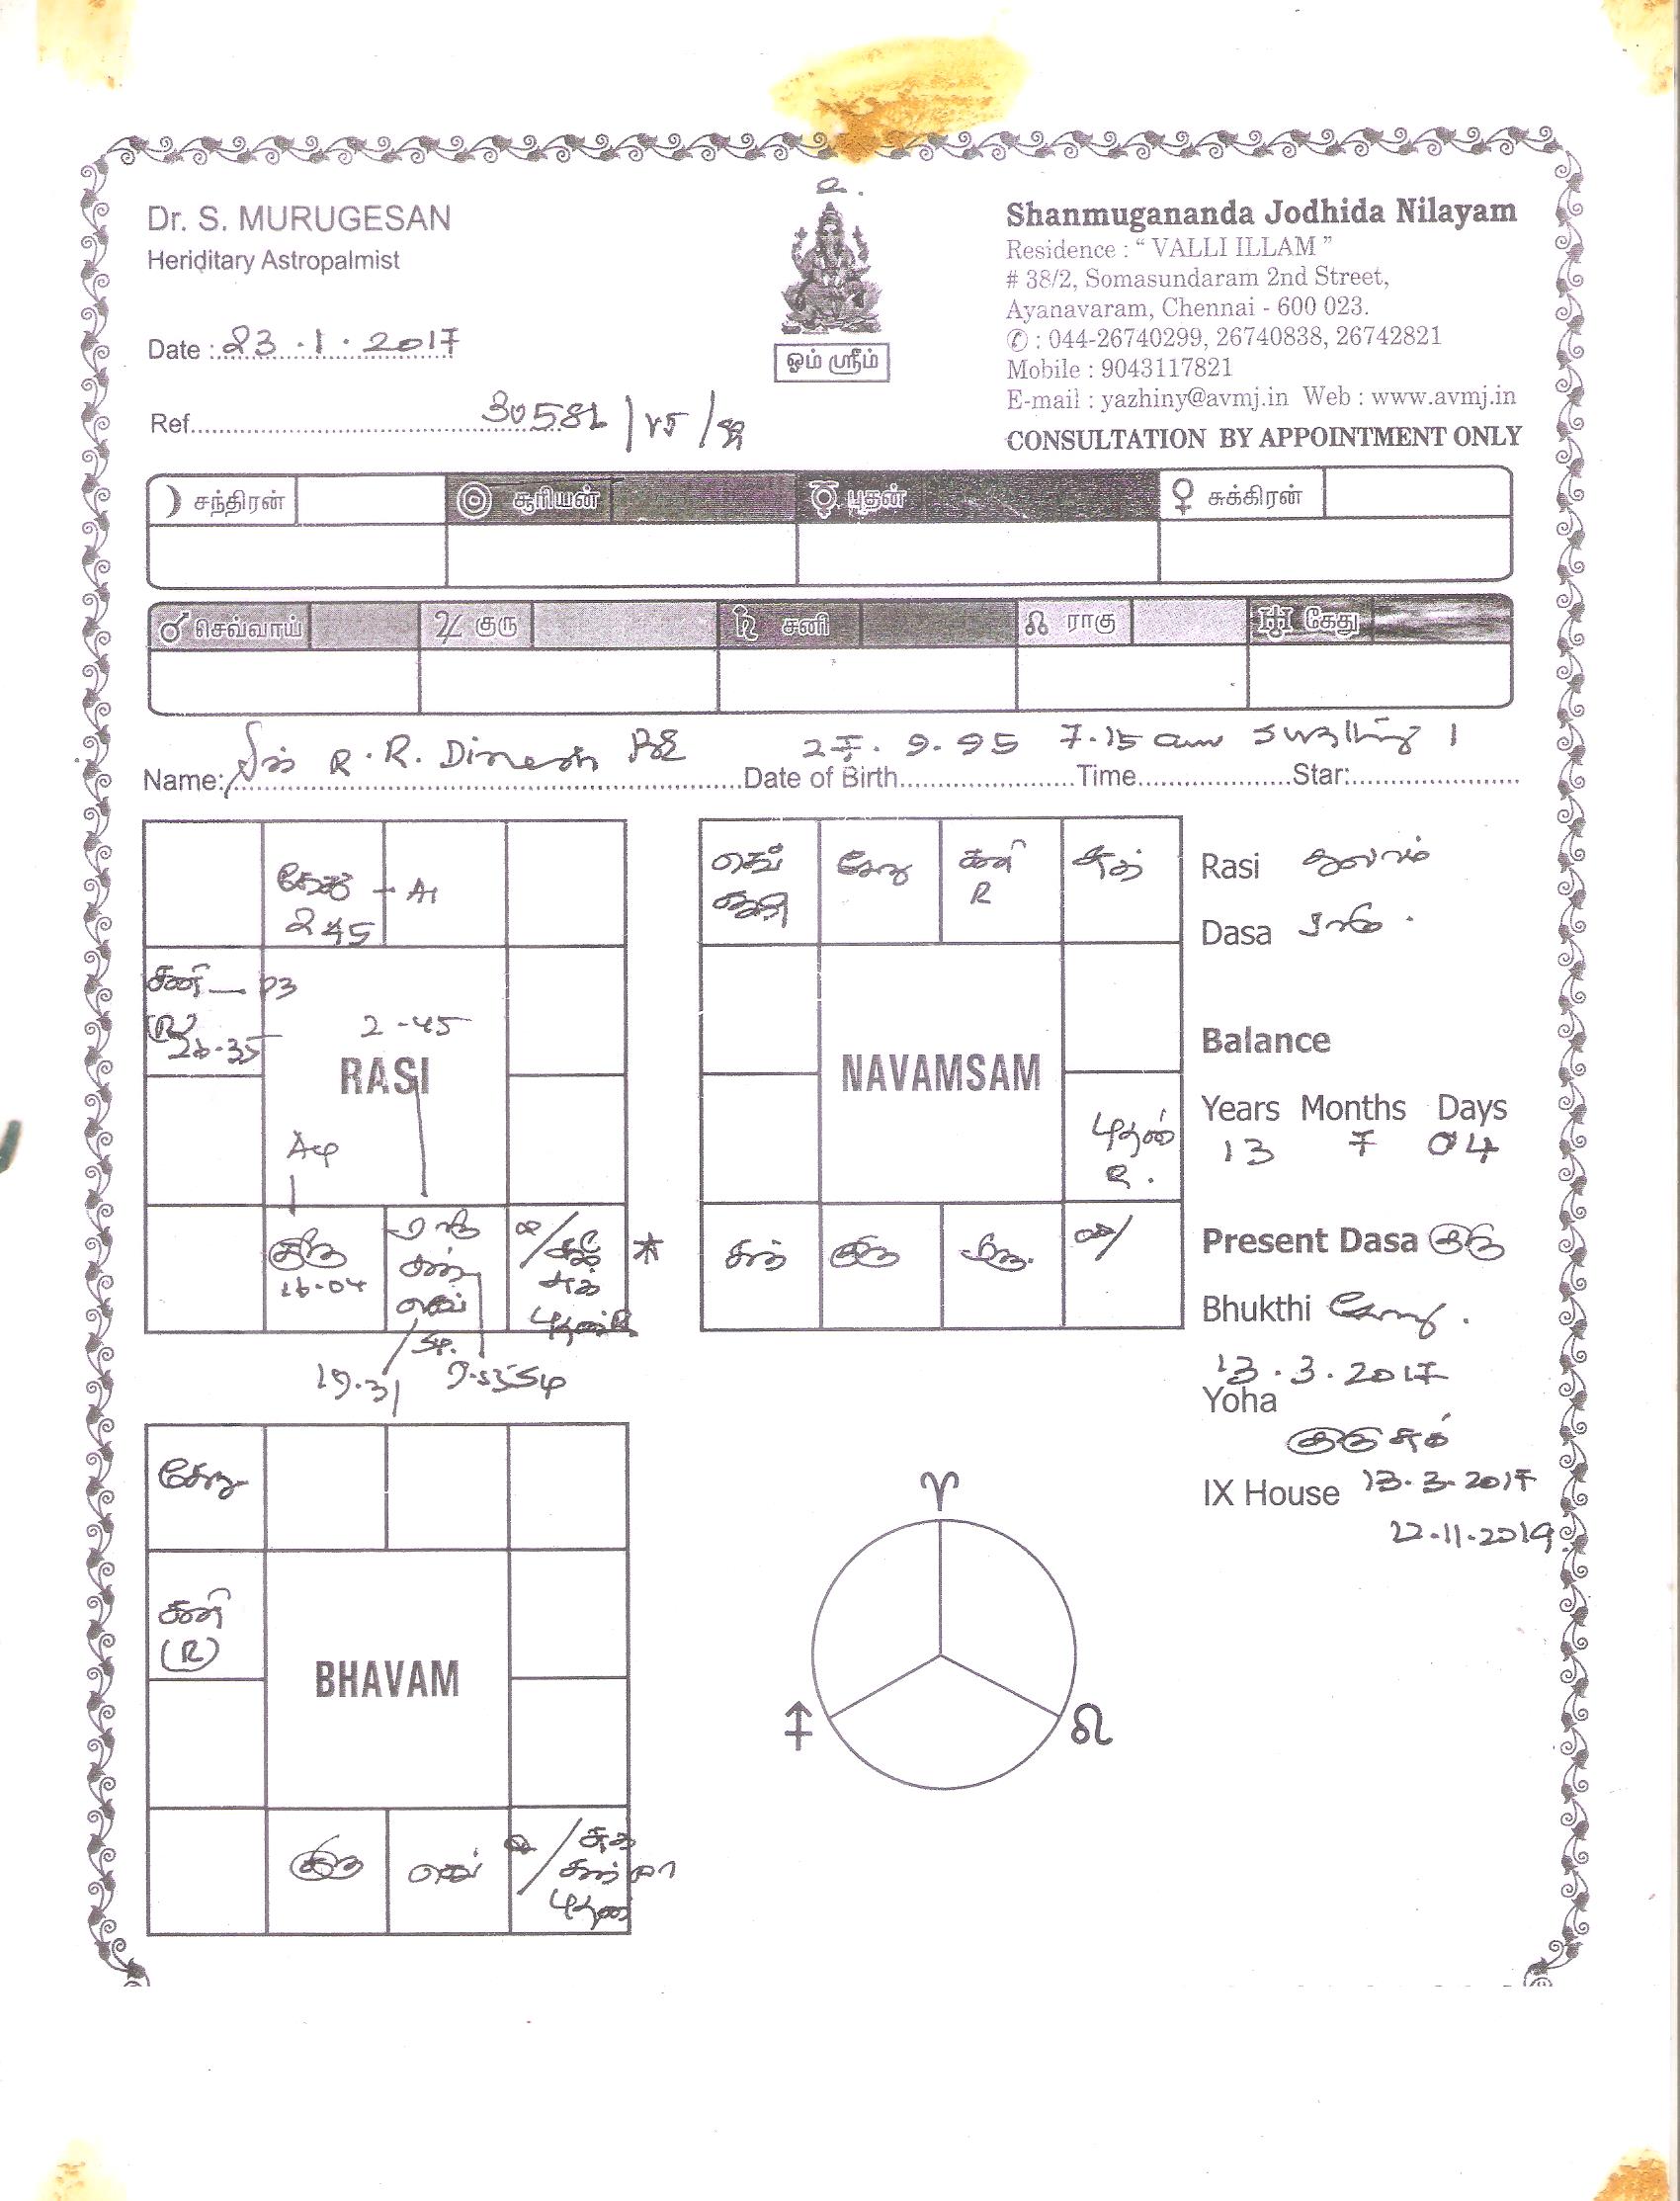 உ.
Dr. S. MURUGESAN
Heriditary Astropalmist
Date : 23.1.2017
Ref. 30581
ஓம் ஸ்ரீம்
Shanmugananda Jodhida Nilayam
Residence : “ VALLI ILLAM ”
# 38/2, Somasundaram 2nd Street,
Ayanavaram, Chennai - 600 023.
✆ : 044-26740299, 26740838, 26742821
Mobile : 9043117821
E-mail : yazhiny@avmj.in Web : www.avmj.in
CONSULTATION BY APPOINTMENT ONLY
சந்திரன் சூரியன் புதன் சுக்கிரன்
செவ்வாய் குரு சனி ராகு கேது
Name: R. R. Dinesh Date of Birth 27.9.95 Time 7.15 am Star:
கேது
2 45
சனி
(R)
26-35
2-45
RASI
குரு
16-04
ராகு
சந்
செவ்
ல/
சுக்
புதன் R
*
19.31
செவ்
சூரி
கேது
சனி
R
சுக்
NAVAMSAM
புதன்
R.
சந்
குரு
ராகு
ல/
Rasi துலாம்
Dasa ராகு
Balance
Years Months Days
13 7 04
Present Dasa குரு
Bhukthi கேது.
13.3.2017
Yoha
குரு சுக்
IX House 13-3-2017
22-11-2019
கேது
சனி
(R)
BHAVAM
குரு
செவ்
ல/
புதன்